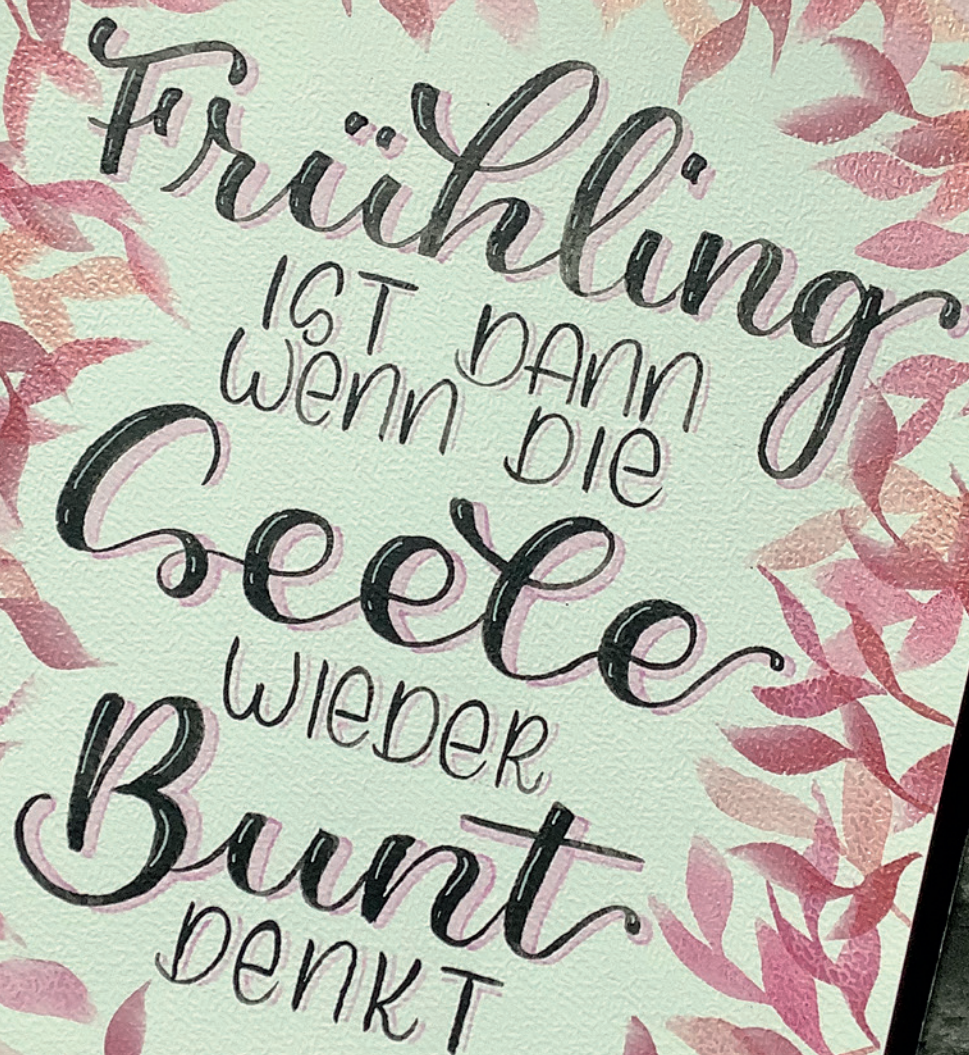 Frühling
IST DANN
WENN DIE
Seele
WIEDER
Bunt
DENKT